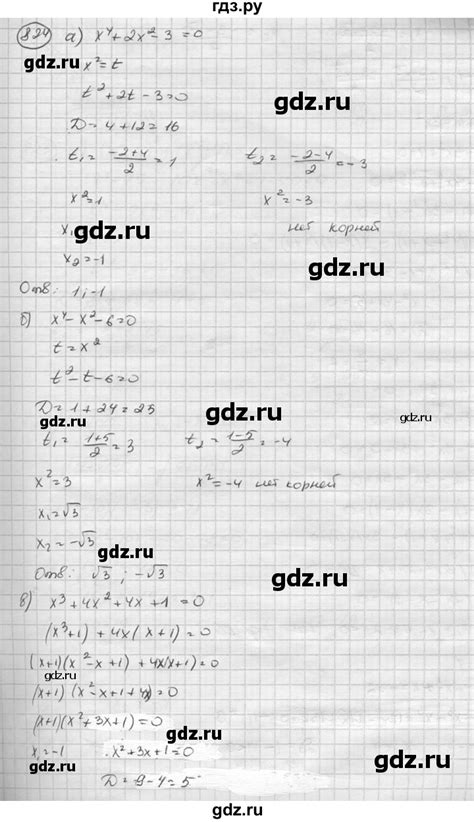 гдз.ру
824 а) x⁴ + 2x² - 3 = 0
gdz.ru
x² = t
t² + 2t - 3 = 0
gdz.ru
D = 4 + 12 = 16
t₁ = (-2+4)/2 = 1 t₂ = (-2-4)/2 = -3
x² = 1 x² = -3
gdz.ru
x₁ нет корней
x₂ = -1
gdz.ru
Отв: 1; -1
б) x⁴ - x² - 6 = 0
t = x²
t² - t - 6 = 0
D = 1 + 24 = 25
gdz.ru
gdz.ru
t₁ = (1+5)/2 = 3 t₂ = (1-5)/2 = -4
x² = 3 x² = -4 нет корней
x₁ = √3
x₂ = -√3
gdz.ru
Отв: √3; -√3
gdz.ru
в) x³ + 4x² + 4x + 1 = 0
(x³+1) + 4x(x+1) = 0
(x+1)(x²-x+1) + 4x(x+1) = 0
gdz.ru
(x+1)(x²-x+1+4x) = 0
(x+1)(x²+3x+1) = 0
x₁ = -1 x²+3x+1 = 0
gdz.ru
gdz.ru
D = 9 - 4 = 5
gdz.ru